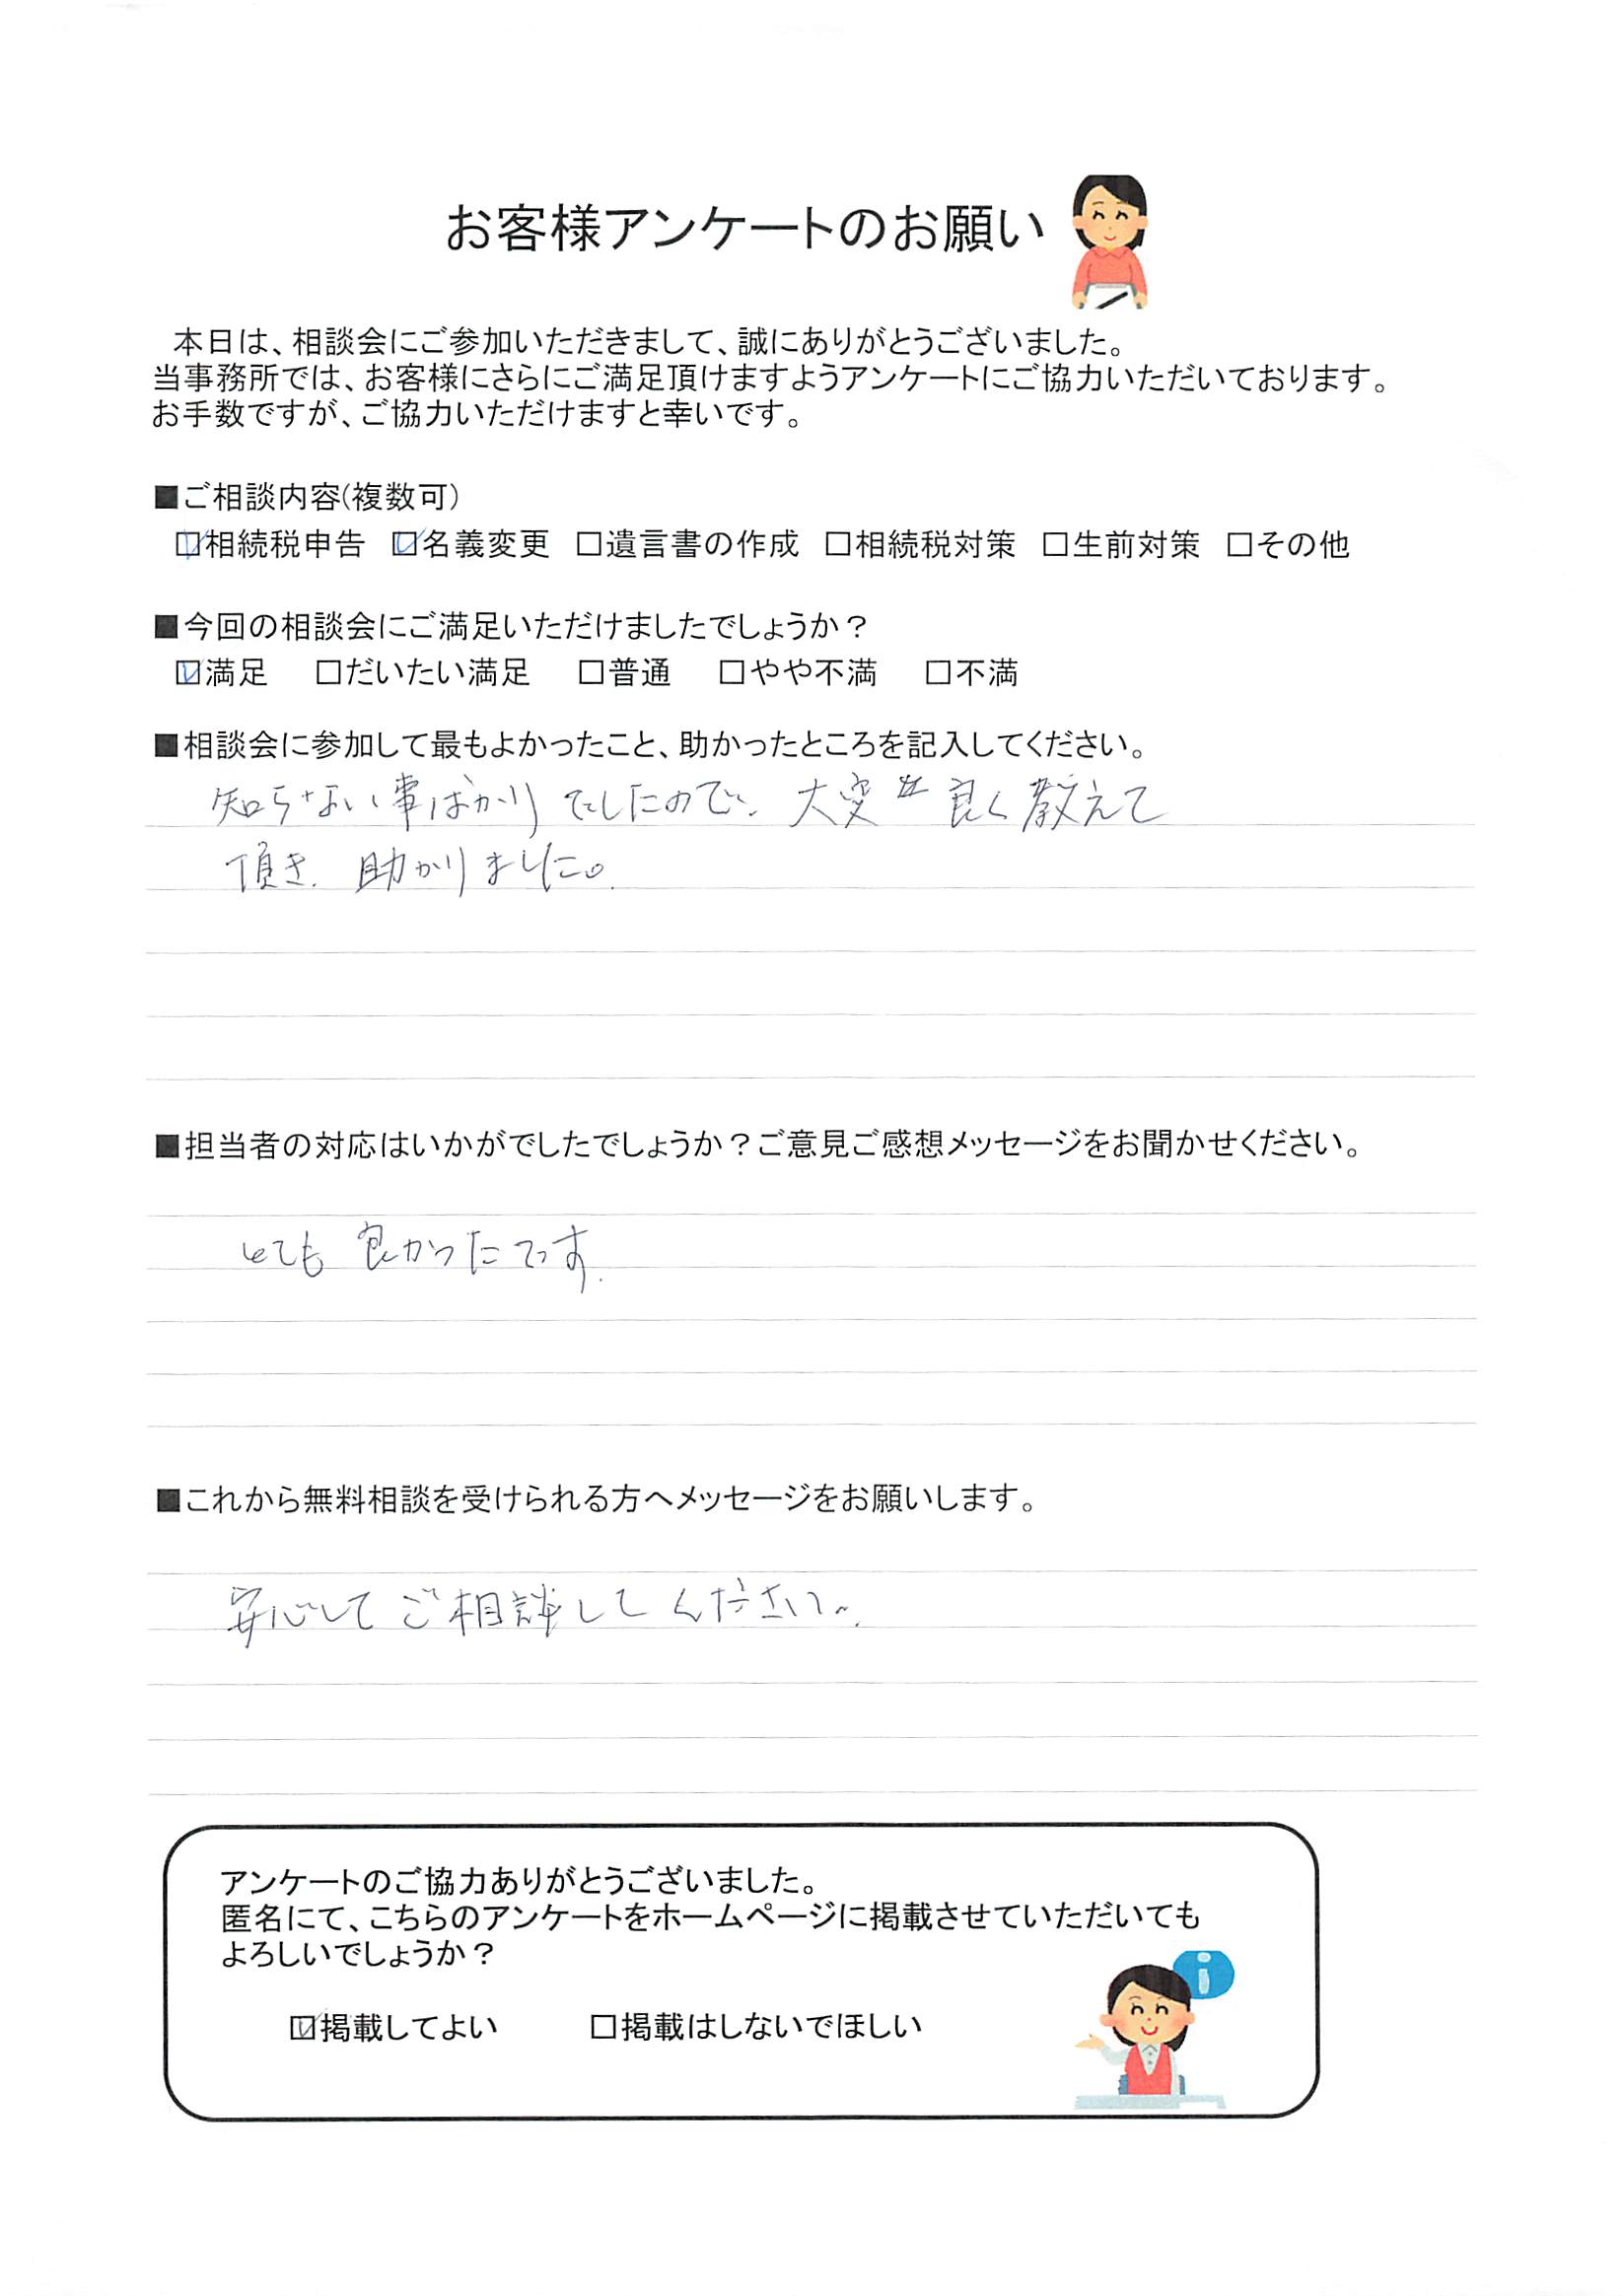 お客様アンケートのお願い
本日は、相談会にご参加いただきまして、誠にありがとうございました。
当事務所では、お客様にさらにご満足頂けますようアンケートにご協力いただいております。
お手数ですが、ご協力いただけますと幸いです。
■ご相談内容(複数可)
☑相続税申告 ☑名義変更 □遺言書の作成 □相続税対策 □生前対策 □その他
■今回の相談会にご満足いただけましたでしょうか？
☑満足 □だいたい満足 □普通 □やや不満 □不満
■相談会に参加して最もよかったこと、助かったところを記入してください。
知らない事ばかりでしたので、大変 良く教えて
頂き、助かりました。
■担当者の対応はいかがでしたでしょうか？ご意見ご感想メッセージをお聞かせください。
とても良かったです.
■これから無料相談を受けられる方へメッセージをお願いします。
安心してご相談してください。
アンケートのご協力ありがとうございました。
匿名にて、こちらのアンケートをホームページに掲載させていただいても
よろしいでしょうか？
i
☑掲載してよい □掲載はしないでほしい